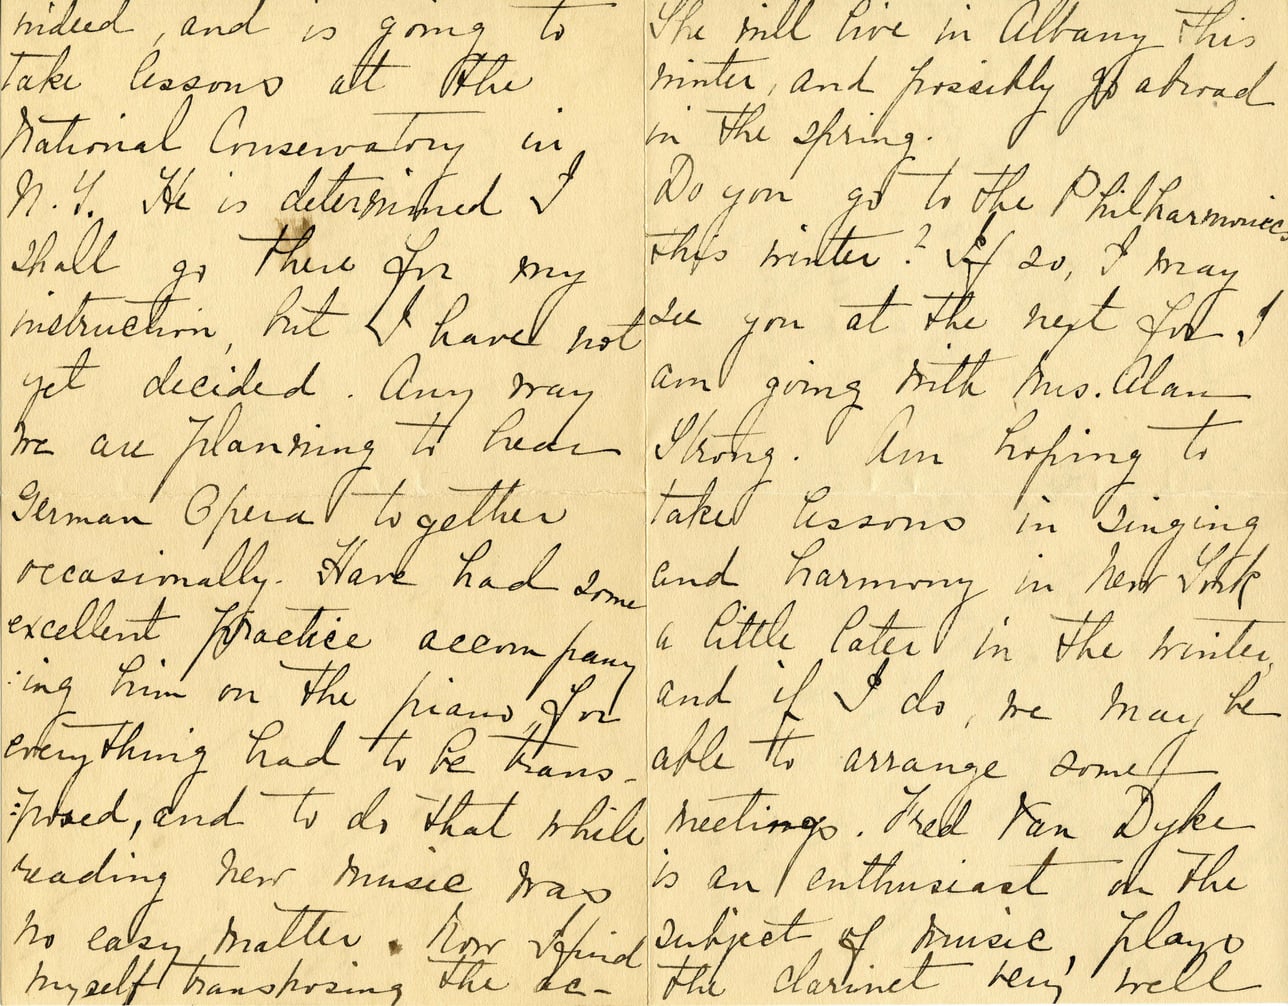 indeed, and is going to
take lessons at the
National Conservatory in
N. Y. He is determined I
shall go there for my
instruction, but I have not
yet decided. Any way
we are planning to hear
German Opera together
occasionally. Have had some
excellent practice accompany
:ing him on the piano, for
everything had to be trans-
:posed, and to do that while
reading new music was
no easy matter. Now I find
myself transposing the ac-
She will live in Albany this
winter, and possibly go abroad
in the spring.
Do you go to the Philharmonics
this winter? If so, I may
see you at the next for I
am going with Mrs. Alan
Strong. Am hoping to
take lessons in singing
and harmony in New York
a little later in the winter,
and if I do, we may be
able to arrange some
meetings. Fred Van Dyke
is an enthusiast on the
subject of music, plays
the clarinet very well